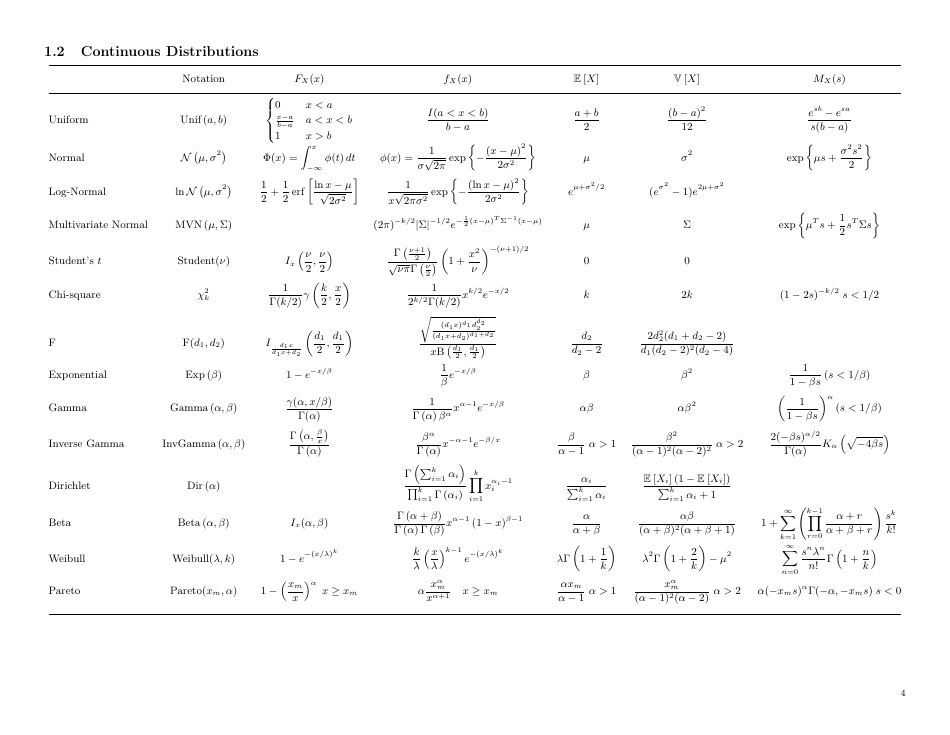 1.2 Continuous Distributions
Notation F_X(x) f_X(x) 𝔼[X] 𝕍[X] M_X(s)
Uniform Unif(a, b) {0 x < a; (x−a)/(b−a) a < x < b; 1 x > b I(a < x < b)/(b − a) (a + b)/2 (b − a)^2/12 (e^{sb} − e^{sa})/(s(b − a))
Normal 𝒩(μ, σ^2) Φ(x) = ∫_{−∞}^{x} φ(t) dt φ(x) = 1/(σ√(2π)) exp{−(x − μ)^2/(2σ^2)} μ σ^2 exp{μs + σ^2s^2/2}
Log-Normal ln 𝒩(μ, σ^2) 1/2 + 1/2 erf[(ln x − μ)/√(2σ^2)] 1/(x√(2πσ^2)) exp{−(ln x − μ)^2/(2σ^2)} e^{μ+σ^2/2} (e^{σ^2} − 1)e^{2μ+σ^2}
Multivariate Normal MVN(μ, Σ) (2π)^{−k/2}|Σ|^{−1/2}e^{−1/2(x−μ)^TΣ^{−1}(x−μ)} μ Σ exp{μ^T s + 1/2 s^T Σs}
Student's t Student(ν) I_x(ν/2, ν/2) Γ((ν+1)/2)/(√(νπ)Γ(ν/2)) (1 + x^2/ν)^{−(ν+1)/2} 0 0
Chi-square χ_k^2 1/Γ(k/2) γ(k/2, x/2) 1/(2^{k/2}Γ(k/2)) x^{k/2}e^{−x/2} k 2k (1 − 2s)^{−k/2} s < 1/2
F F(d_1, d_2) I_{d_1x/(d_1x+d_2)}(d_1/2, d_1/2) √((d_1x)^{d_1}d_2^{d_2}/(d_1x+d_2)^{d_1+d_2})/(xB(d_1/2, d_1/2)) d_2/(d_2 − 2) 2d_2^2(d_1 + d_2 − 2)/(d_1(d_2 − 2)^2(d_2 − 4))
Exponential Exp(β) 1 − e^{−x/β} 1/β e^{−x/β} β β^2 1/(1 − βs) (s < 1/β)
Gamma Gamma(α, β) γ(α, x/β)/Γ(α) 1/(Γ(α)β^α) x^{α−1}e^{−x/β} αβ αβ^2 (1/(1 − βs))^α (s < 1/β)
Inverse Gamma InvGamma(α, β) Γ(α, β/x)/Γ(α) β^α/Γ(α) x^{−α−1}e^{−β/x} β/(α − 1) α > 1 β^2/((α − 1)^2(α − 2)^2) α > 2 2(−βs)^{α/2}/Γ(α) K_α(√(−4βs))
Dirichlet Dir(α) Γ(∑_{i=1}^k α_i)/∏_{i=1}^k Γ(α_i) ∏_{i=1}^k x_i^{α_i−1} α_i/∑_{i=1}^k α_i 𝔼[X_i](1 − 𝔼[X_i])/(∑_{i=1}^k α_i + 1)
Beta Beta(α, β) I_x(α, β) Γ(α + β)/(Γ(α)Γ(β)) x^{α−1}(1 − x)^{β−1} α/(α + β) αβ/((α + β)^2(α + β + 1)) 1 + ∑_{k=1}^∞ (∏_{r=0}^{k−1} (α + r)/(α + β + r)) s^k/k!
Weibull Weibull(λ, k) 1 − e^{−(x/λ)^k} k/λ (x/λ)^{k−1} e^{−(x/λ)^k} λΓ(1 + 1/k) λ^2Γ(1 + 2/k) − μ^2 ∑_{n=0}^∞ s^nλ^n/n! Γ(1 + n/k)
Pareto Pareto(x_m, α) 1 − (x_m/x)^α x ≥ x_m α x_m^α/x^{α+1} x ≥ x_m αx_m/(α − 1) α > 1 x_m^α/((α − 1)^2(α − 2)) α > 2 α(−x_ms)^αΓ(−α, −x_ms) s < 0
4